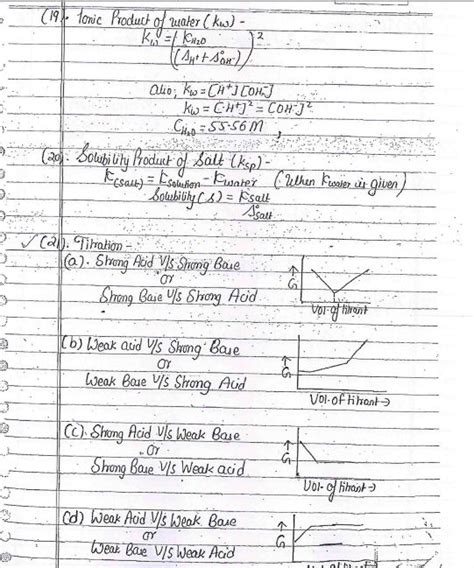 (19). Ionic Product of water (Kw) -
Kw = (K H2O / (Λ°H+ + Λ°OH-))²
Also, Kw = [H+] [OH-]
Kw = [H+]² = [OH-]²
C H2O = 55.56 M,
(20). Solubility Product of Salt (Ksp) -
K(salt) = Ksolution - Kwater (When Kwater is given)
Solubility (s) = Ksalt / Λ°salt
✓ (21). Titration -
(a). Strong Acid V/s Strong Base
or
Strong Base V/s Strong Acid
G →
Vol. of titrant
(b) Weak acid V/s Strong Base
or
Weak Base V/s Strong Acid
G →
Vol. of titrant →
(c). Strong Acid V/s Weak Base
or
Strong Base V/s Weak acid
G →
Vol. of titrant →
(d) Weak Acid V/s Weak Base
or
Weak Base V/s Weak Acid
G →